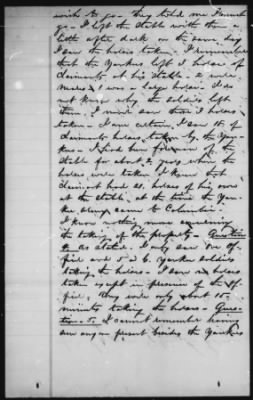 wish to go - they told me I must
go - I left the stable with them a
little after dark on the same day
I saw the horses taken - I remember
that the Yankees left 3 horses of
claimants at his stable - 2 were
Mares & 1 was a large horse - I do
not know why the soldiers left
them - I never saw these 3 horses
taken - I am certain I saw 18 of
claimants horses taken by the Yan-
kees - I had been of the
stable for about 2 years when the
horses were taken I knew that
claimant had 21 horses of his own
at the stable, at the time the Yan-
kee army came to Columbia -
I know nothing more concerning
the taking of the property - Question
as stated. I only saw one of-
ficer and 5 or 6 Yankee soldiers
taking the horses - I saw no horses
taken except in presence of the of-
ficer, they were only about 15
minutes taking the horses - Ques-
tion 5. I cannot remember having
seen anyone present besides the Yankees